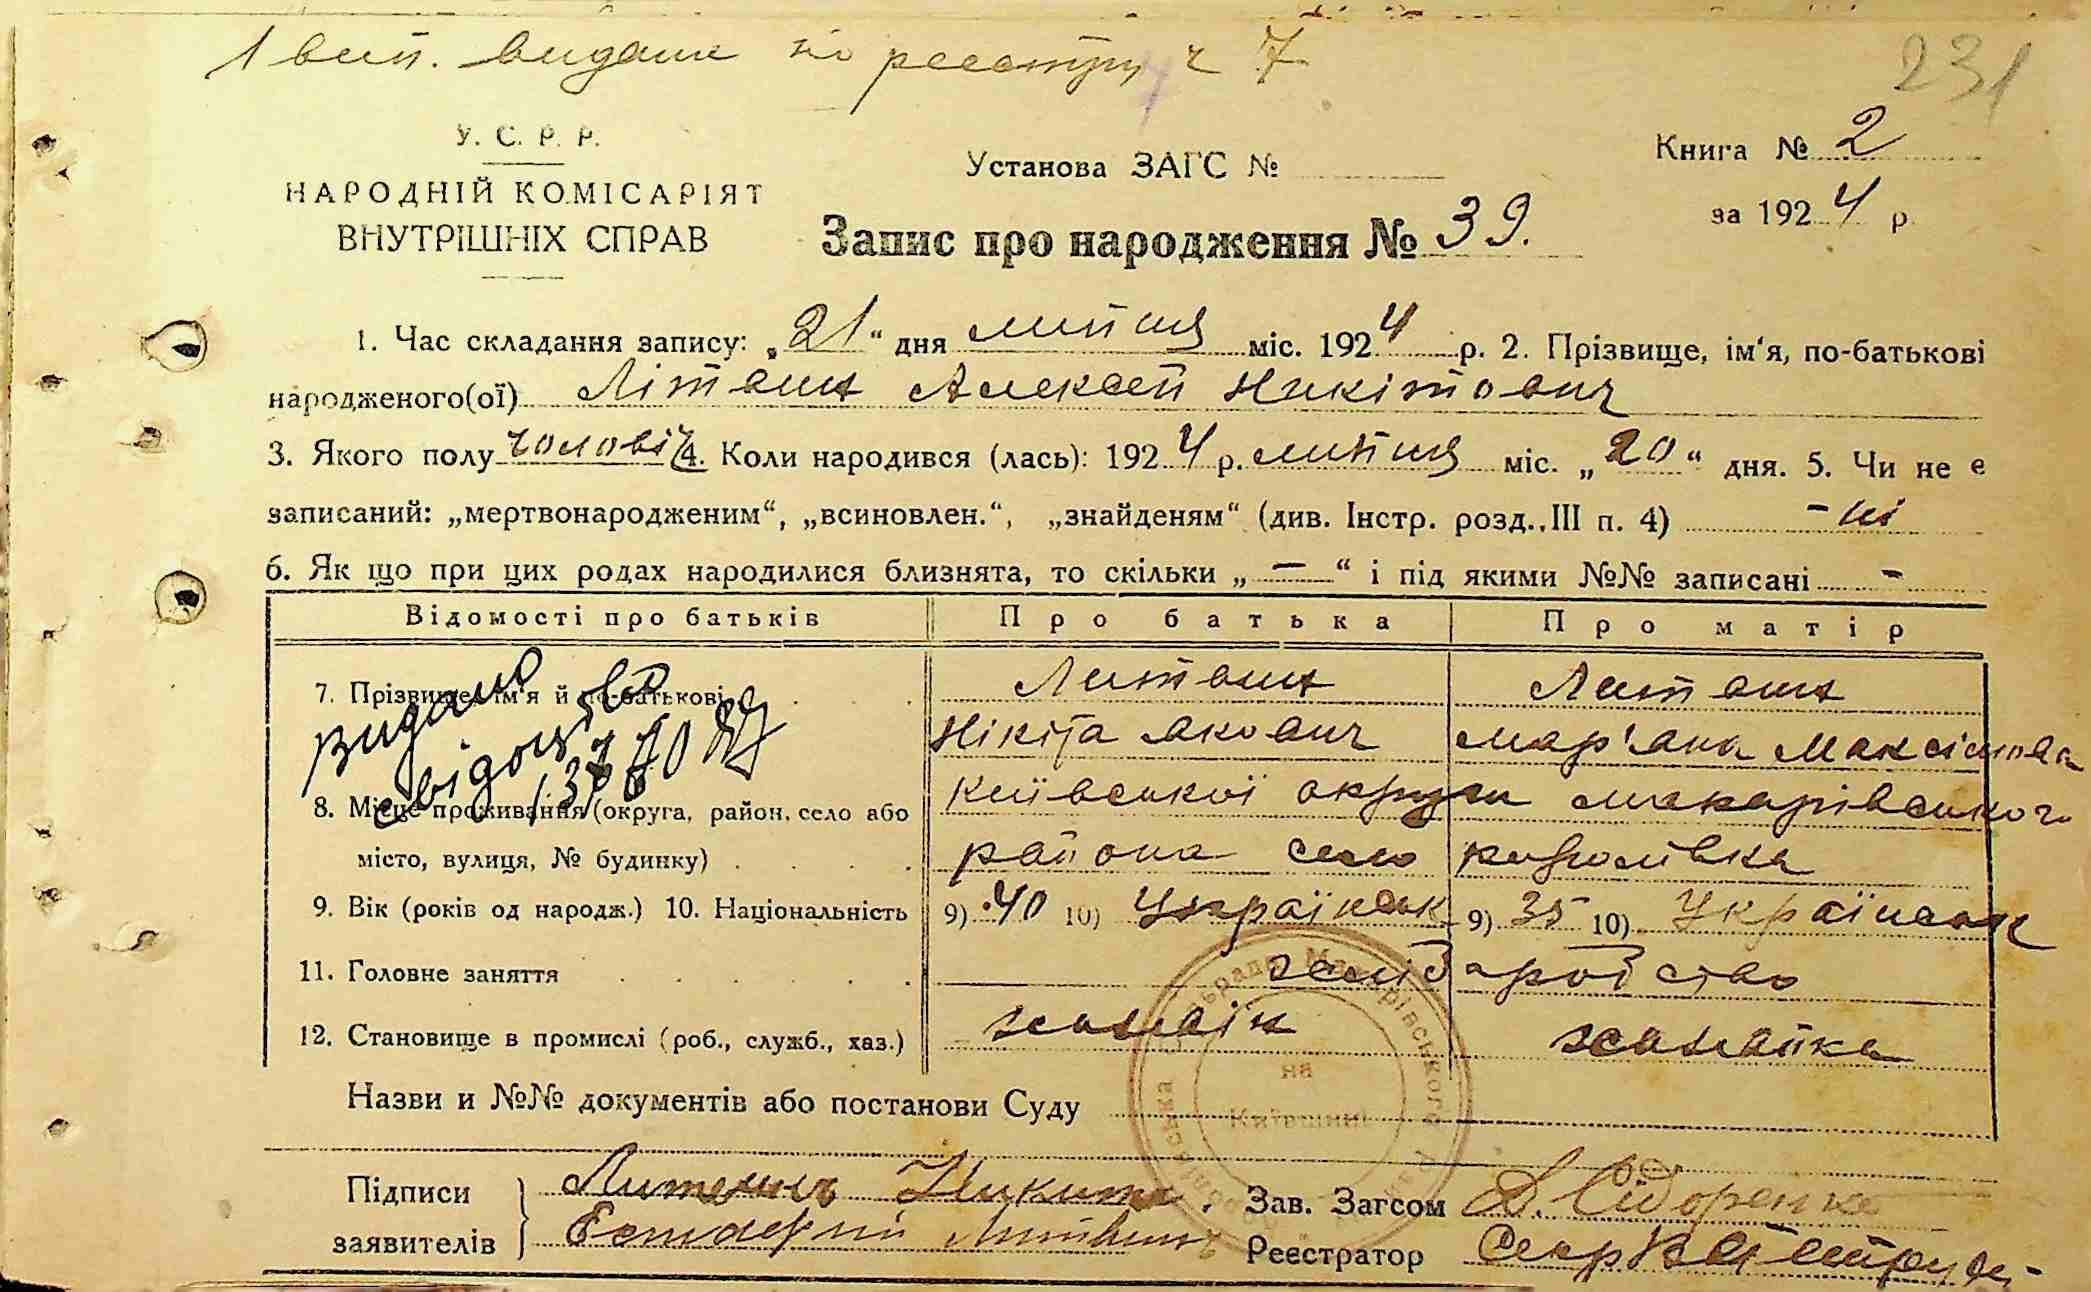 1 вип. видана по реєстру ч 7
231
У. С. Р. Р.
НАРОДНІЙ КОМІСАРІЯТ
ВНУТРІШНІХ СПРАВ
Установа ЗАГС №
Книга № 2
за 1924 р.
Запис про народження № 39.
1. Час складання запису: „21“ дня липня міс. 1924 р. 2. Прізвище, ім‘я, по-батькові
народженого(ої) Літвин Алексей Никітович
3. Якого полу чоловіч 4. Коли народився (лась): 1924 р. липня міс. „20“ дня. 5. Чи не є
записаний: „мертвонародженим“, „всиновлен.“, „знайденям“ (див. Інстр. розд. III п. 4) - ні
6. Як що при цих родах народилися близнята, то скільки „ — “ і під якими №№ записані -
Відомості про батьків Про батька Про матір
7. Прізвище, ім‘я й по-батькові Литвин Литвин
Нікіта Якович Мар'яна Максімовн
видано свідоцтво
8. Місце проживання (округа, район, село або Київської округи Макарівського
місто, вулиця, № будинку) района село
9. Вік (років од народж.) 10. Національність 9) 40 10) Українск 9) 35 10) Українск
11. Головне заняття хліборобство
12. Становище в промислі (роб., служб., хаз.) хазяїн хазяйка
Назви и №№ документів або постанови Суду
на
Київщині
Підписи Литвинъ Никита. Зав. Загсом Д. Сідоренко
заявителів Литвинъ Реєстратор